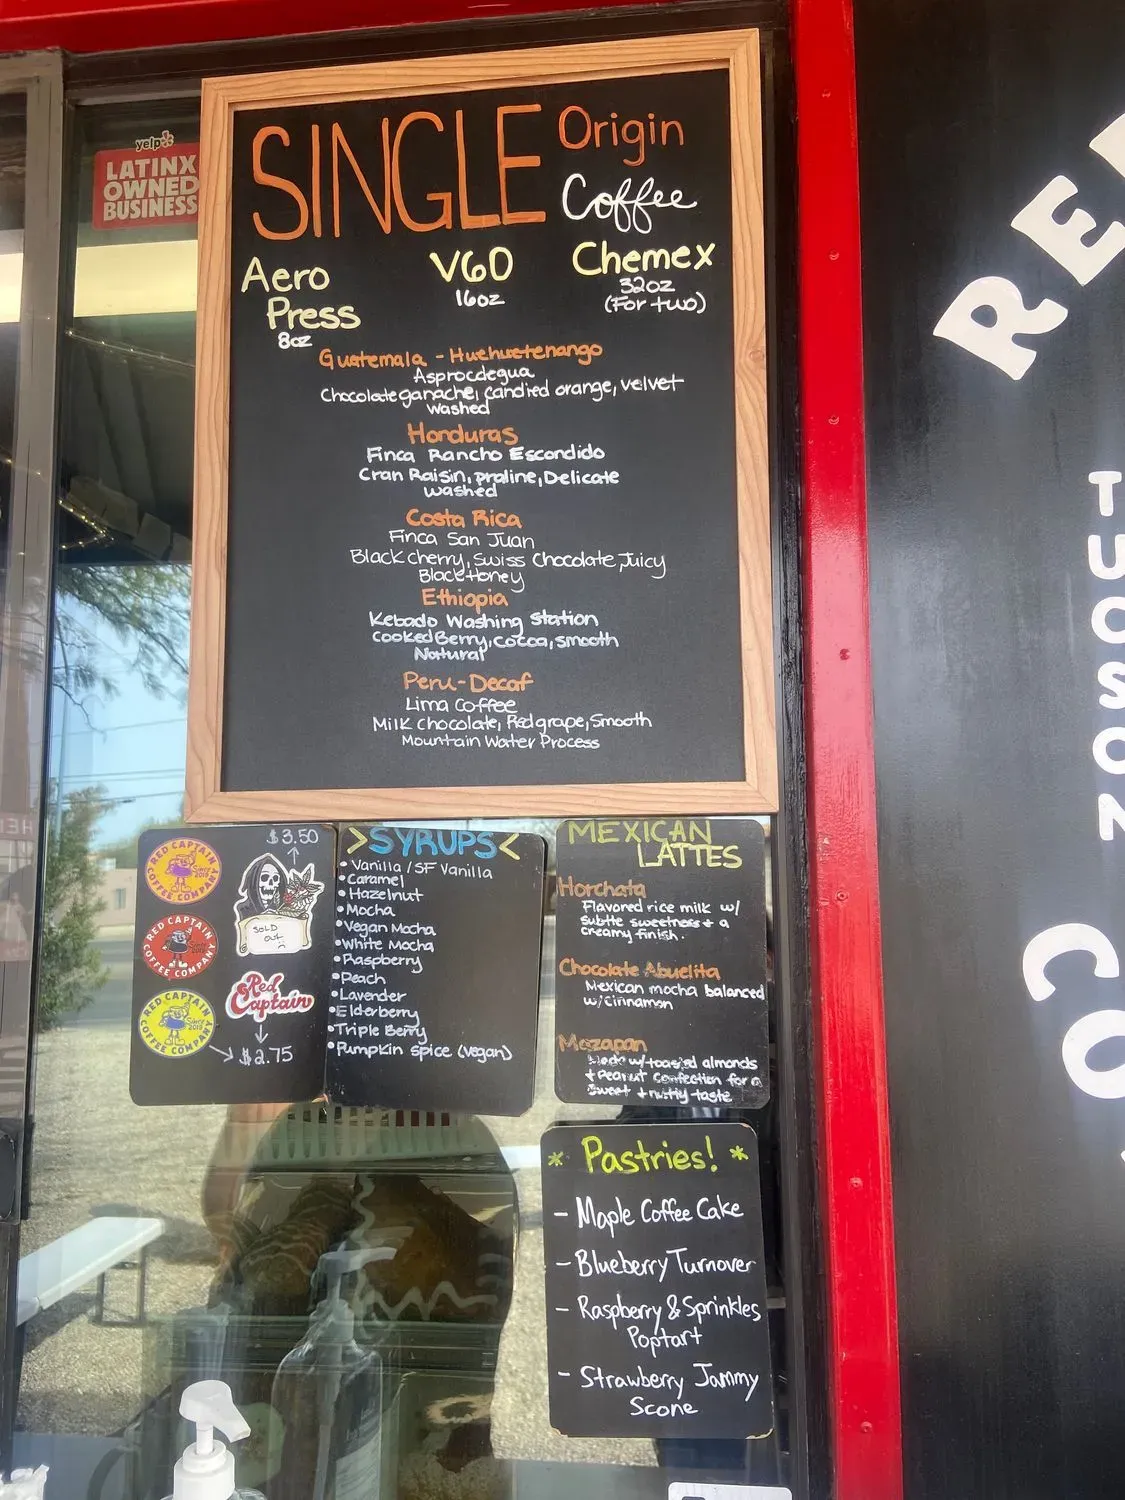 yelp
LATINX
OWNED
BUSINESS
SINGLE Origin
Coffee
Aero
Press
8oz
V60
16oz
Chemex
32oz
(For two)
Guatemala - Huehuetenango
Asprocdegua
Chocolate ganache, candied orange, velvet
washed
Honduras
Finca Rancho Escondido
Cran Raisin, praline, Delicate
washed
Costa Rica
Finca San Juan
Black cherry, Swiss Chocolate, Juicy
Black Honey
Ethiopia
Kebado Washing Station
Cooked Berry, Cocoa, smooth
Natural
Peru-Decaf
Lima Coffee
Milk chocolate, Red grape, Smooth
Mountain Water Process
$3.50
RED CAPTAIN
Since
2018
COFFEE COMPANY
SOLD
OUT
RED CAPTAIN
COFFEE COMPANY
Red
Captain
RED CAPTAIN
Since
2018
COFFEE COMPANY
$2.75
>SYRUPS<
• Vanilla / SF Vanilla
• Caramel
• Hazelnut
• Mocha
• Vegan Mocha
• White Mocha
• Raspberry
• Peach
• Lavender
• Elderberry
• Triple Berry
• Pumpkin spice (vegan)
MEXICAN
LATTES
Horchata
Flavored rice milk w/
subtle sweetness + a
creamy finish.
Chocolate Abuelita
Mexican mocha balanced
w/cinnamon
Mazapan
Made w/toasted almonds
+ Peanut confection for a
sweet + nutty taste
* Pastries! *
- Maple Coffee Cake
- Blueberry Turnover
- Raspberry & Sprinkles
Poptart
- Strawberry Jammy
Scone
RE
TUCSON
CO